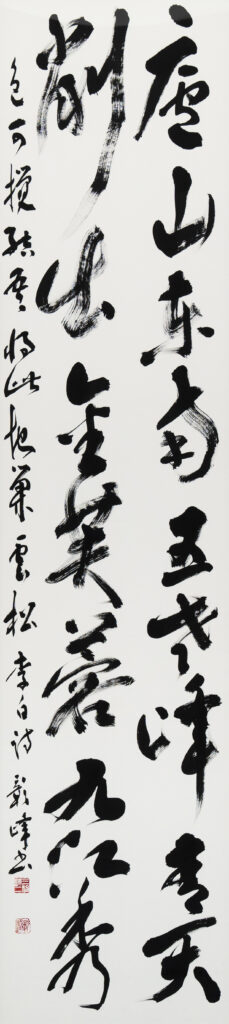 廬山東南五老峰青天
削出金芙蓉九江秀
色可攬結吾將此地巢雲松 李白詩 峰書